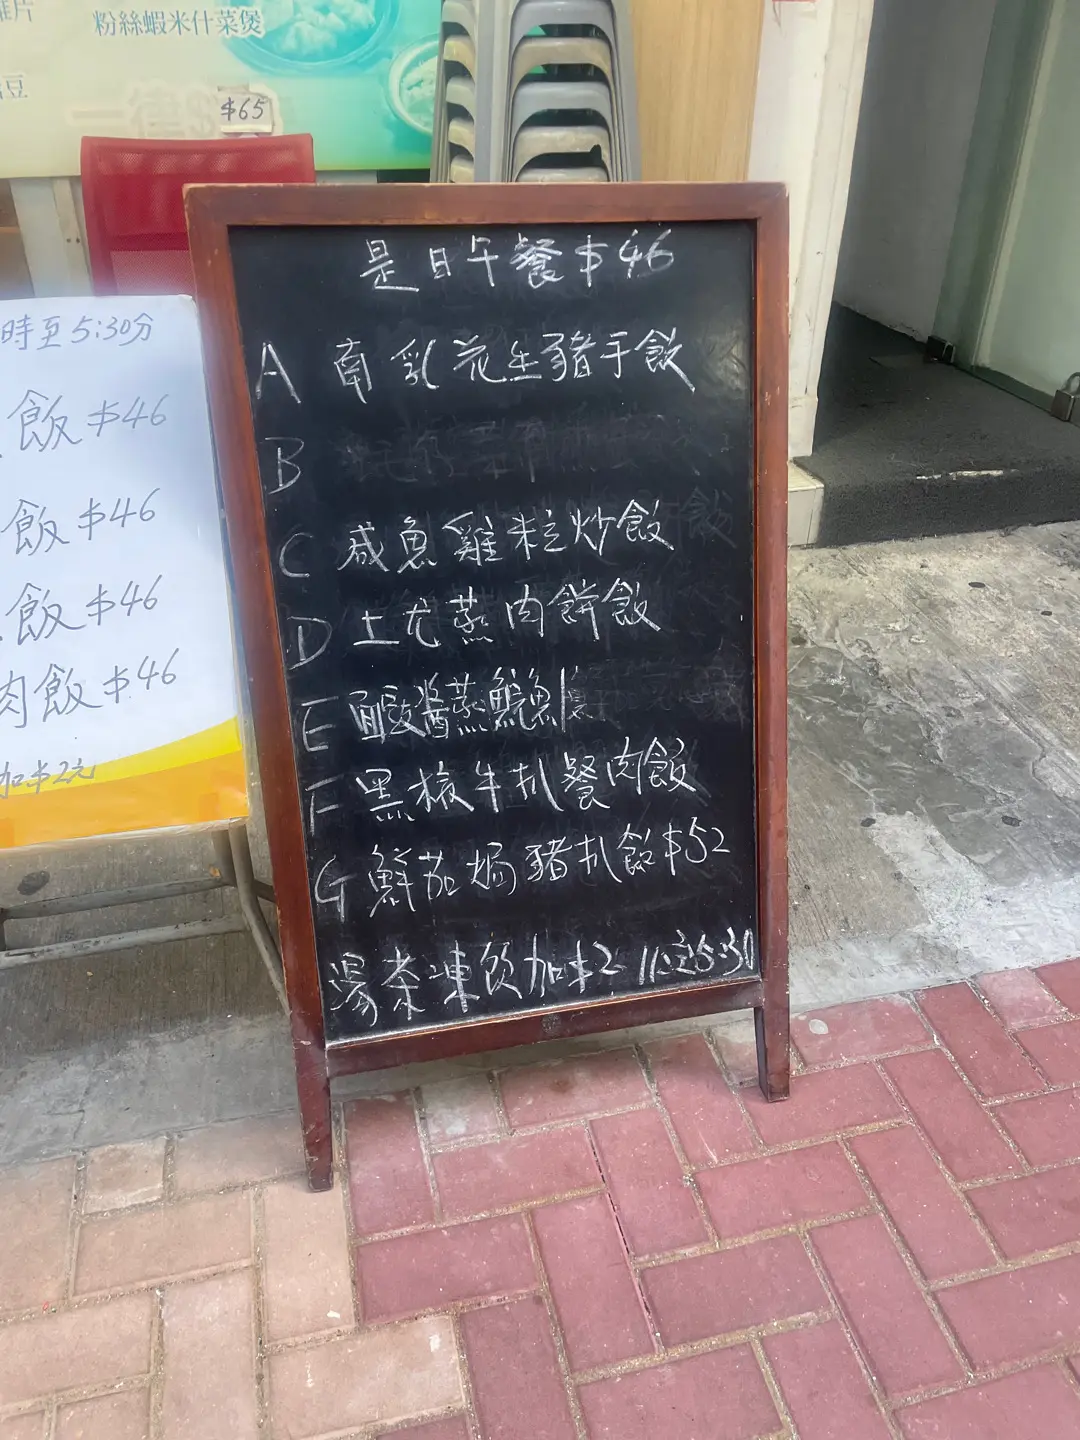 粉絲蝦米什菜煲
豆
一律$65
時至5:30分
飯$46
飯$46
飯$46
肉飯$46
加$2元
是日午餐$46
A 南乳花生豬手飯
B
C 咸魚雞粒炒飯
D 土尤蒸肉餅飯
E 面豉醬蒸鯇魚
F 黑椒牛扒餐肉飯
G 鮮茄焗豬扒飯$52
湯茶凍飲加$2 11:至5:30